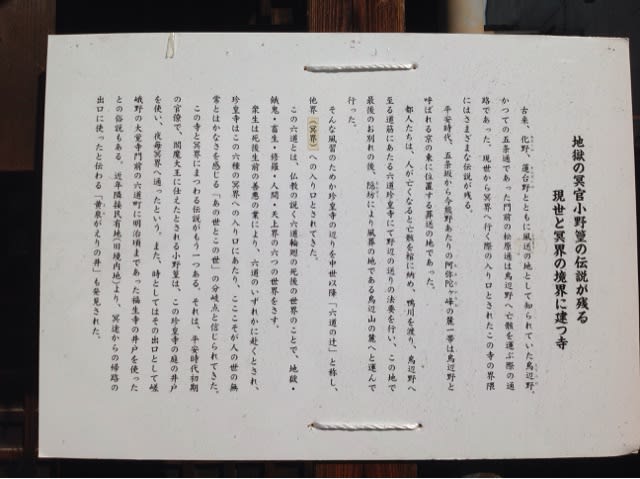 地獄の冥官小野篁の伝説が残る
現世と冥界の境界に建つ寺
古来、化野、蓮台野とともに風送の地として知られていた鳥辺野。
かつての五条通であった門前の松原通は鳥辺野へ亡骸を運ぶ際の通
路であった。現世から冥界へ行く際の入り口とされたこの寺の界隈
にはさまざまな伝説が残る。
平安時代、五条坂から今熊野あたりの阿弥陀ヶ峰の麓一帯は鳥辺野と
呼ばれる京の東に位置する葬送の地であった。
都人たちは、人が亡くなると亡骸を棺に納め、鴨川を渡り、鳥辺野へ
至る道筋にあたる六道珍皇寺にて野辺の送りの法要を行い、この地で
最後のお別れの後、隠坊により風葬の地である鳥辺山の麓へと運んで
行った。
そんな風習のためか珍皇寺の辺りを中世以降「六道の辻」と称し、
他界（冥界）への入り口とされてきた。
この六道とは、仏教の説く六道輪廻の死後の世界のことで、地獄・
餓鬼・畜生・修羅・人間・天上界の六つの世界をさす。
衆生は死後生前の善悪の業により、六道のいずれかに赴くとされ、
珍皇寺はこの六種の冥界への入り口にあたり、ここここそが人の世の無
常とはかなさを感じる「あの世とこの世」の分岐点と信じられてきた。
この寺と冥界にまつわる伝説がもう一つある。それは、平安時代初期
の官僚で、閻魔大王に仕えたとされる小野篁は、この珍皇寺の庭の井戸
を使い、夜毎冥界へ通ったという。また、時としてはその出口として嵯
峨野の大覚寺門前の六道町に明治頃まであった福生寺の井戸を使った
との俗説もある。近年隣接民有地（旧境内地）より、冥途からの帰路の
出口に使ったと伝わる「黄泉がえりの井」も発見された。